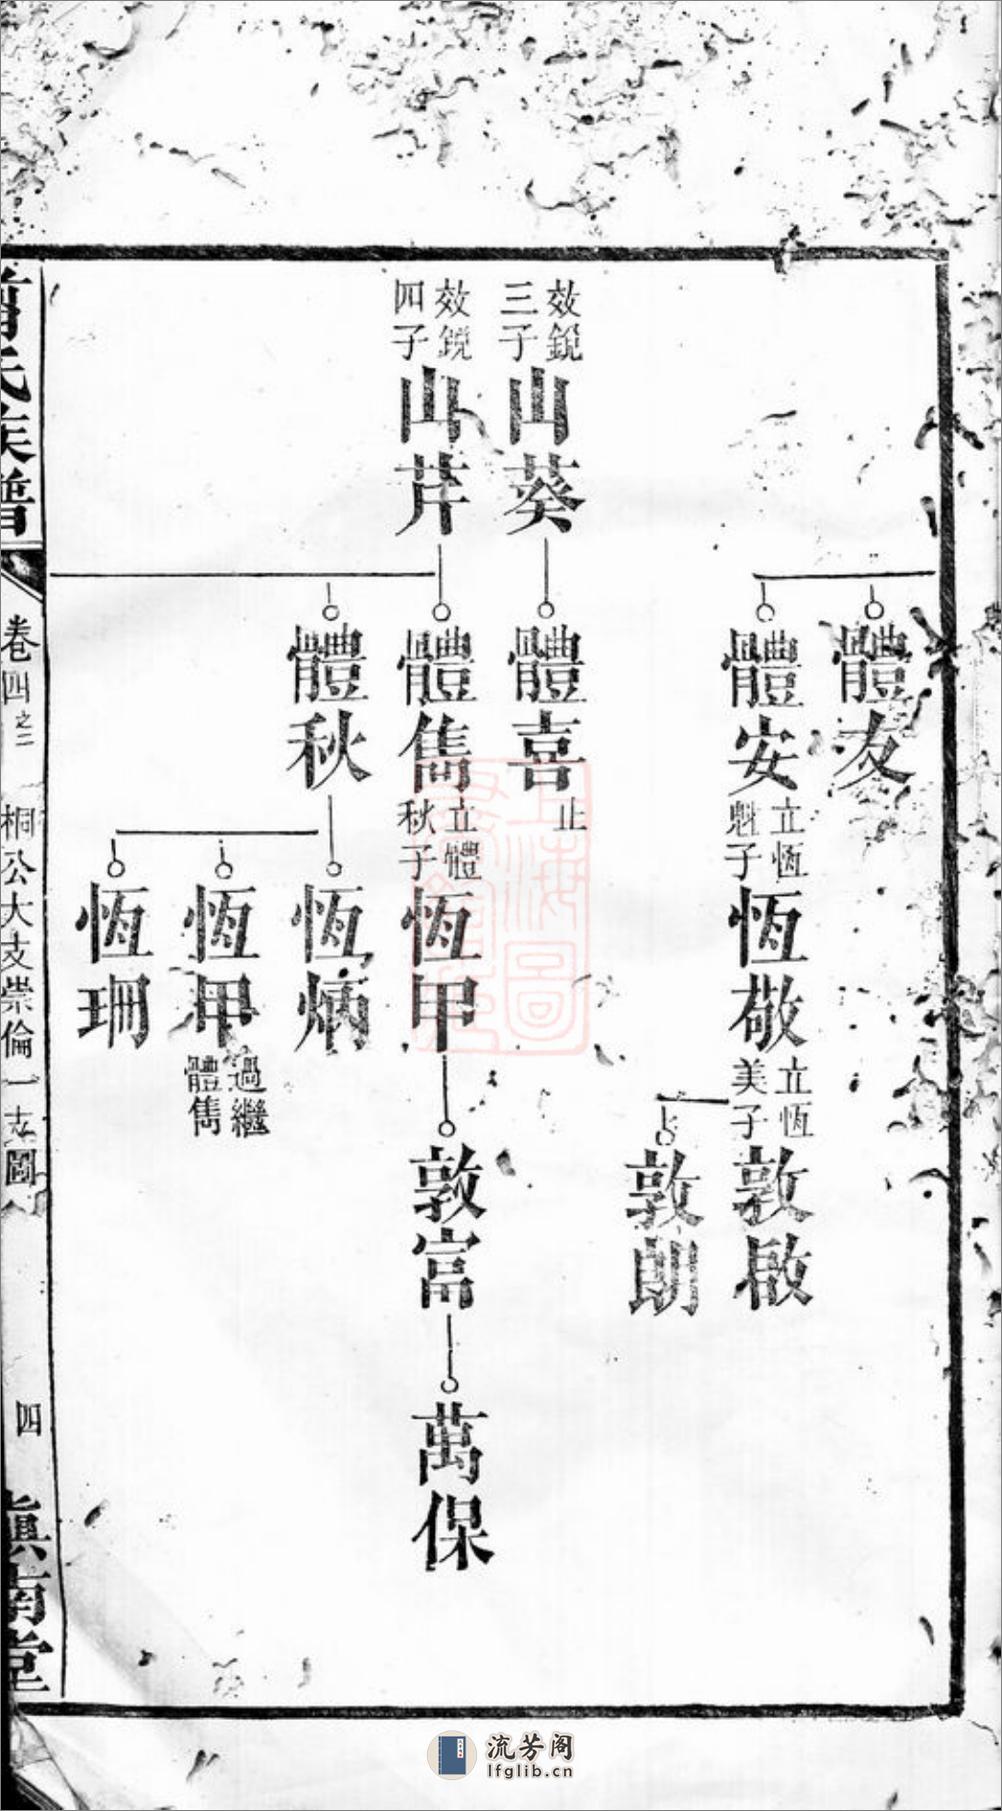 體友
體安
立恆
魁子
恆敬
立恆
美子
敦啟
敦朗
效銳
三子
山葵
體喜
止
效銳
四子
山芹
體雋
立體
秋子
恆甲
敦富
萬保
體秋
恆炳
恆甲
過繼
體雋
恆珊
氏族譜
卷四之二
桐公大支崇倫一
圖
四
南堂
上海圖
流芳阁
lfglib.cn